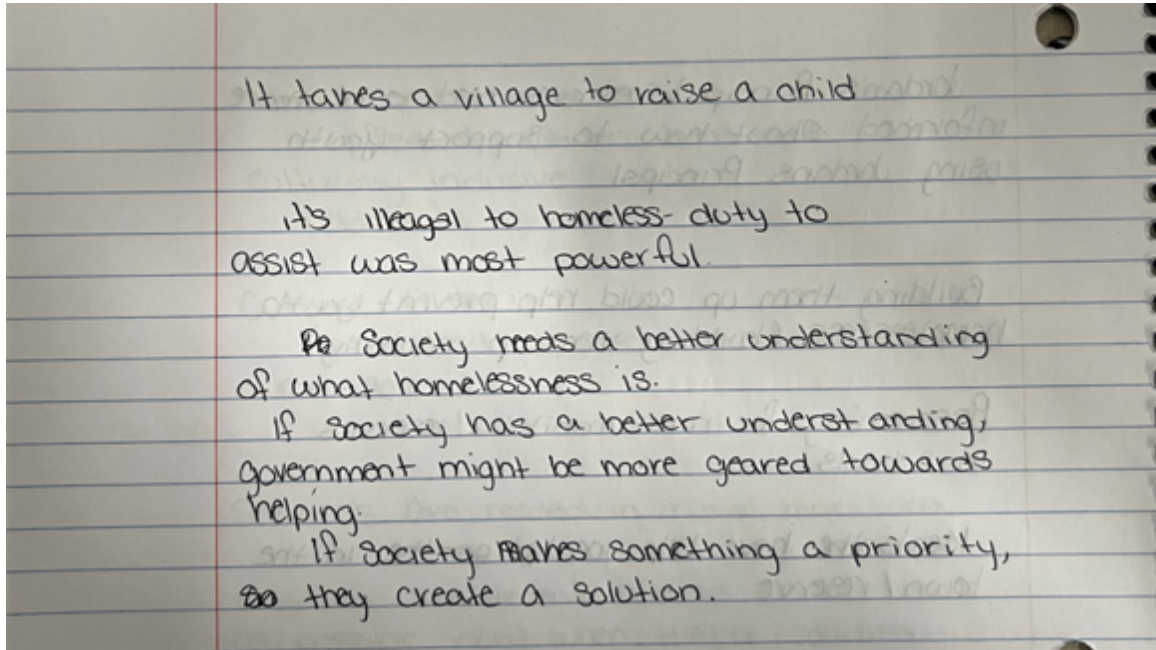 It takes a village to raise a child
it's illeagal to homeless- duty to
assist was most powerful.
Society needs a better understanding
of what homelessness is.
If society has a better understanding,
government might be more geared towards
helping.
If society makes something a priority,
they create a solution.